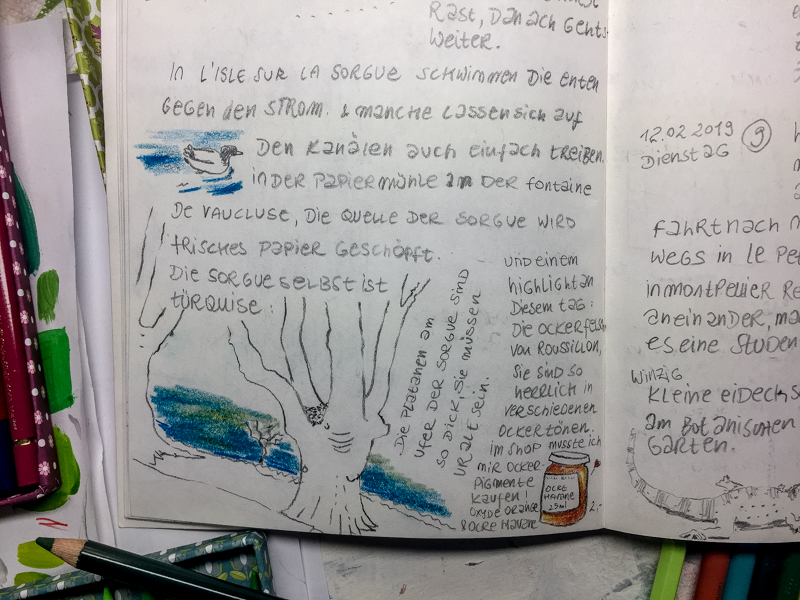 Rast, Danach Gehts
weiter.
In L'ISLE SUR LA SORGUE schwimmen Die enten
Gegen den STROM. & manche Lassen sich auf
Den Kanälen auch einfach treiben.
in DER Papiermühle in DER fontaine
De VAUCLUSE, Die QUELLE DER SORGUE WIRD
frisches Papier Geschöpft.
Die SORGUE SELBST ist
türquise.
Die Platanen am
Ufer DER SORGUE SIND
so Dick, Sie müssen
URALT sein.
UND einem
highlight an
Diesem taG:
Die OCKERfelsen
Von Roussillon,
Sie SIND so
herrlich in
verschiedenen
OCKERtönen.
im SHOP musste ich
mir OCKER-
Pigmente
kaufen!
OXYDE ORANGE
& OCRE HAVANE
OCRE
HAVANE
25ml
2,-
12.02.2019
9
Dienstag
fahrt nach
weGs in le
in montpellier
aneinander,
es eine
winziG
kleine
am Botanischen
Garten.